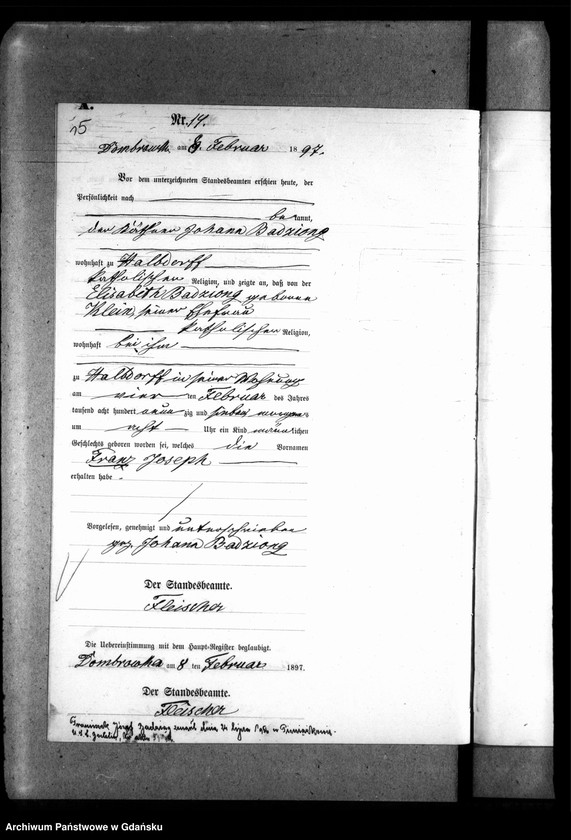 A.
15
Nr. 14.
Dombrowka am 8. Februar 1897.
Vor dem unterzeichneten Standesbeamten erschien heute, der
Persönlichkeit nach
bekannt,
der Käthner Johann Badziong
wohnhaft zu Halbdorff
katholischen Religion, und zeigte an, daß von der
Elisabeth Badziong geborene
Klein, seiner Ehefrau
katholischer Religion,
wohnhaft bei ihm
zu Halbdorff in seiner Wohnung
am vier ten Februar des Jahres
tausend acht hundert neun zig und sieben morgens
um acht Uhr ein Kind männlichen
Geschlechts geboren worden sei, welches die Vornamen
Franz Joseph
erhalten habe.
Vorgelesen, genehmigt und unterschrieben
gez. Johann Badziong
Der Standesbeamte.
Fleischer
Die Uebereinstimmung mit dem Haupt-Register beglaubigt.
Dombrowka am 8 ten Februar 1897.
Der Standesbeamte.
Fleischer
Franciszek Józef zmarł dnia lipca w
U.S.C.
Archiwum Państwowe w Gdańsku